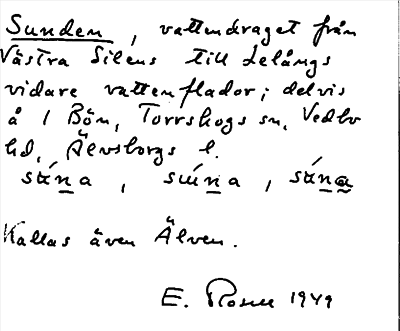 Sunden, vattendraget från
Västra Silens till Lelångs
vidare vattenflador; delvis
å i Bön, Torrskogs sn, Vedbo
hd, Älvsborgs l.
Kallas även Älven.
E. Rosell 1949